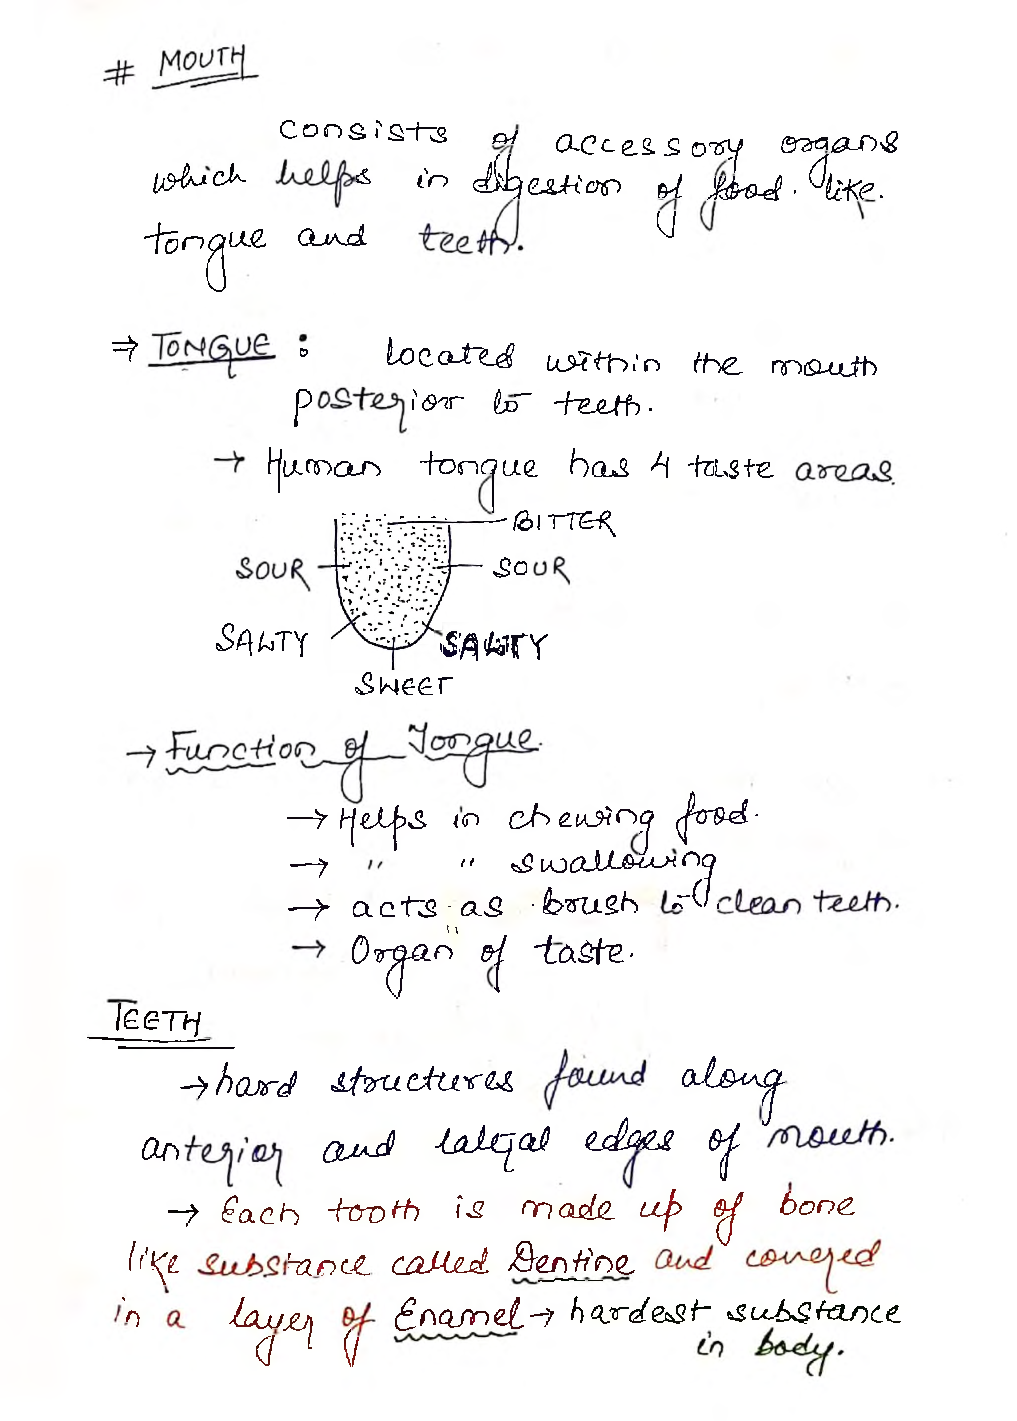 # MOUTH
consists of accessory organs
which helps in digestion of food. like.
tongue and teeth.
⇒ TONGUE : located within the mouth
posterior to teeth.
→ Human tongue has 4 taste areas.
BITTER
SOUR SOUR
SALTY SALTY
SWEET
→ Function of Tongue.
→ Helps in chewing food.
→ " " swallowing
→ acts as brush to clean teeth.
→ Organ of taste.
TEETH
→ hard structures found along
anterior and lateral edges of mouth.
→ Each tooth is made up of bone
like substance called Dentine and covered
in a layer of Enamel → hardest substance
in body.